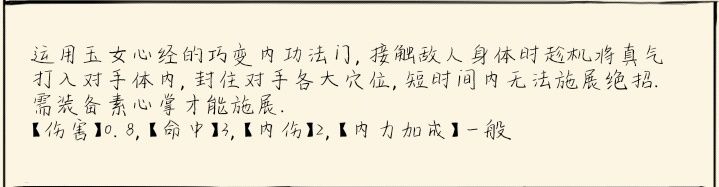 运用玉女心经的巧变内功法门,接触敌人身体时趁机将真气
打入对手体内,封住对手各大穴位,短时间内无法施展绝招.
需装备素心掌才能施展.
【伤害】0.8,【命中】3,【内伤】2,【内力加成】一般